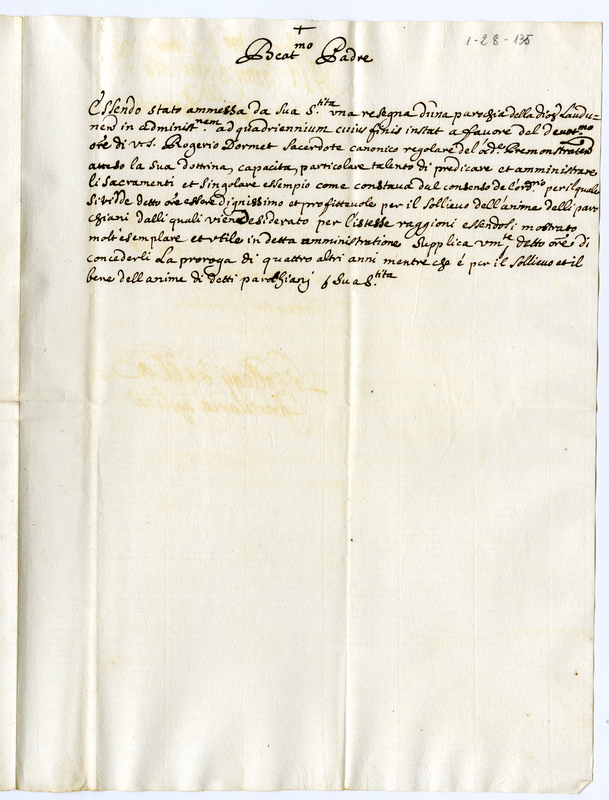 1-28-135
+
Beat.mo Padre
Essendo stato ammessa da sua S.tità vna resegna d'una parochia della dioc. Laudu-
nen. in administ.nem ad quadriennium cuius finis instat a fauore del deuot.mo
ore di V.S. Rogerio Dormet Sacerdote canonico regolare del ord.e Premonstraten
atteso la sua dottrina, capacita, particolare talento di predicare et amministrare
li Sacramenti et Singolare essempio come constaua dal consenso de l'ord.rio per il quale
si vede detto ore essere dignissimo et profitteuole per il sollieuo dell'anime delli paro
chiani dalli quali viene desiderato per l'istesse raggioni essendosi mostrato
molt'esemplare et vtile in detta amministratione supplica vm.te detto ore di
concederli la proroga di quattro altri anni mentre che é per il sollieuo et il
bene dell'anime di detti parochiani e Sua S.tità